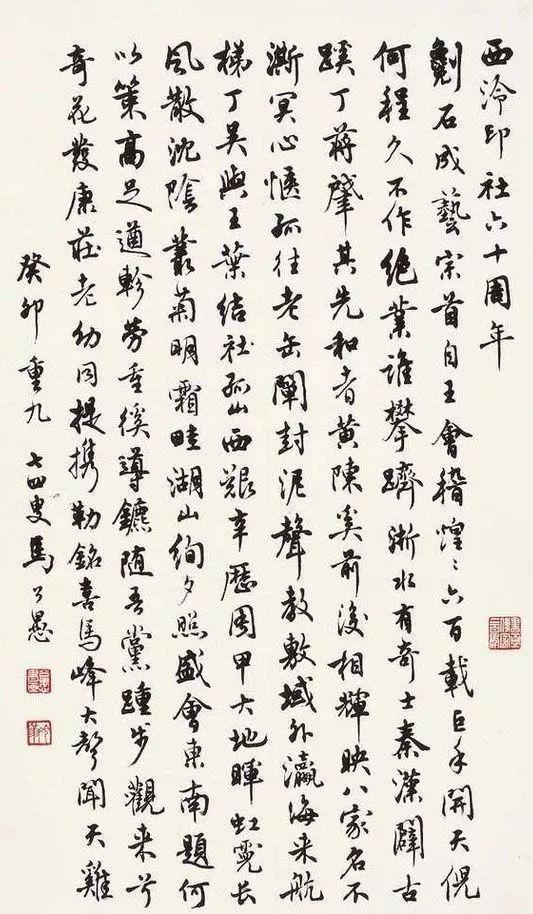 西泠印社六十周年
劖石成藝宗首自王會稽煌〻六百載巨手開天倪
何程久不作絕業誰攀躋浙水有奇士秦漢闢古
蹊丁蔣肇其先和者黃陳奚前後相輝映八家名不
澌冥心愜孤往老缶闡封泥聲教敷域外瀛海来航
梯丁吳與王葉結社孤山西艱辛歷周甲大地暉虹霓長
風散沈陰叢菊明霜畦湖山絢夕照盛會東南題何
以策高足遒軫勞重徯導鑣随吾黨踵步觀来兮
奇花發康莊老幼同提携勒銘喜馬峰大聲聞天雞
癸卯重九 七四叟馬公愚